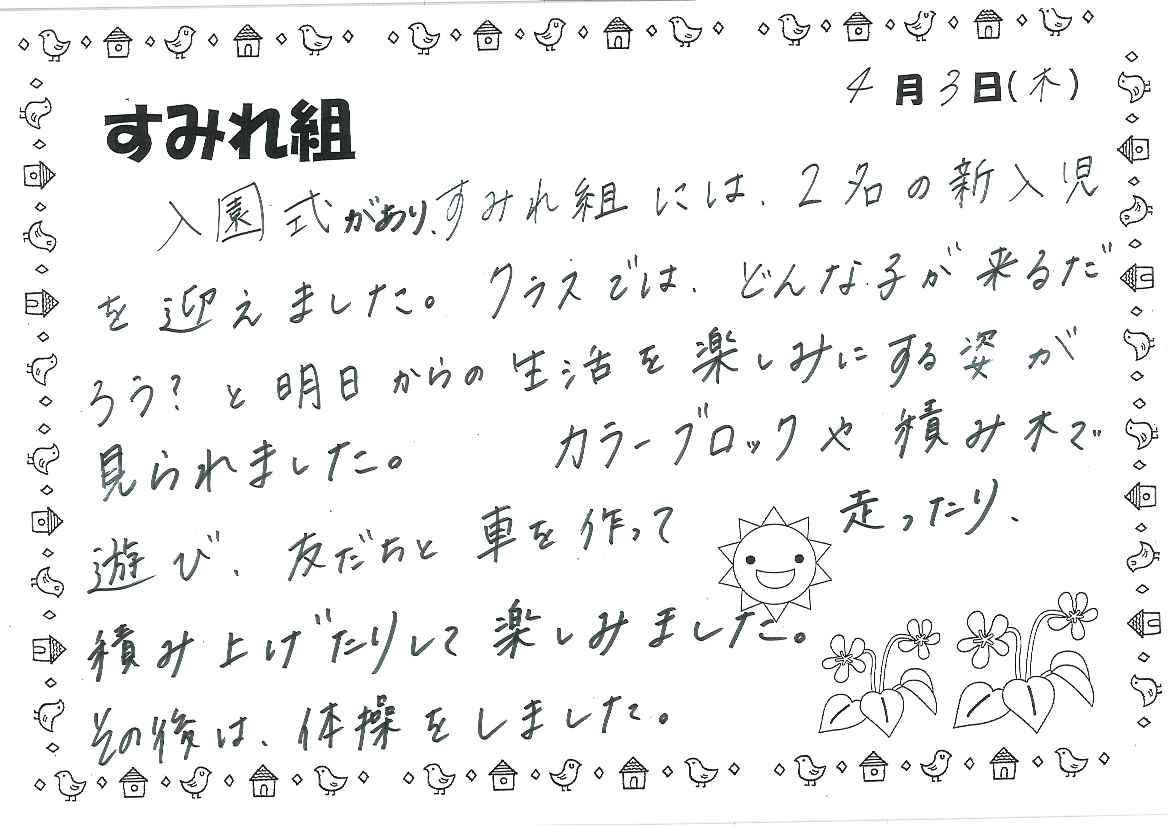 4月3日(木)
すみれ組
入園式があり、すみれ組には、2名の新入児
を迎えました。クラスでは、どんな子が来るだ
ろう?と明日からの生活を楽しみにする姿が
見られました。 カラーブロックや積み木で
遊び、友だちと車を作って走ったり、
積み上げたりして楽しみました。
その後は、体操をしました。